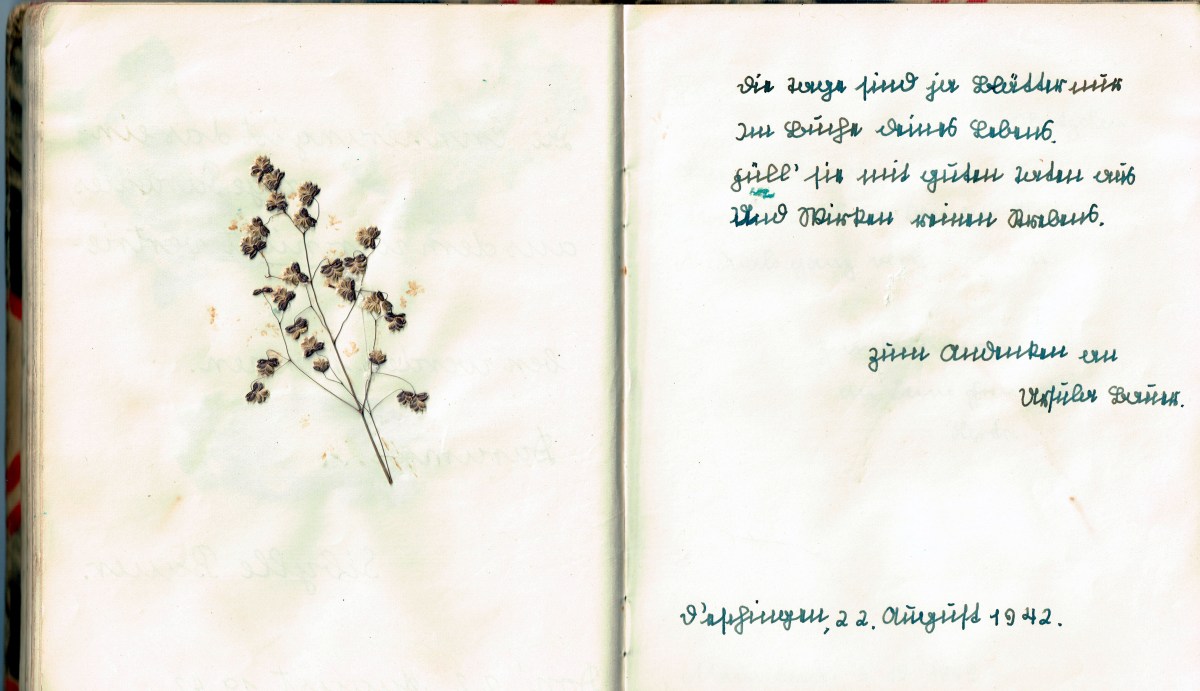 Die Tage sind ja Blätter nur
Im Buche deines Lebens.
Füll' sie mit guten Taten aus
Und Wirken reinen Strebens.
Zum Andenken an
Ursula Bauer.
22. August 1942.